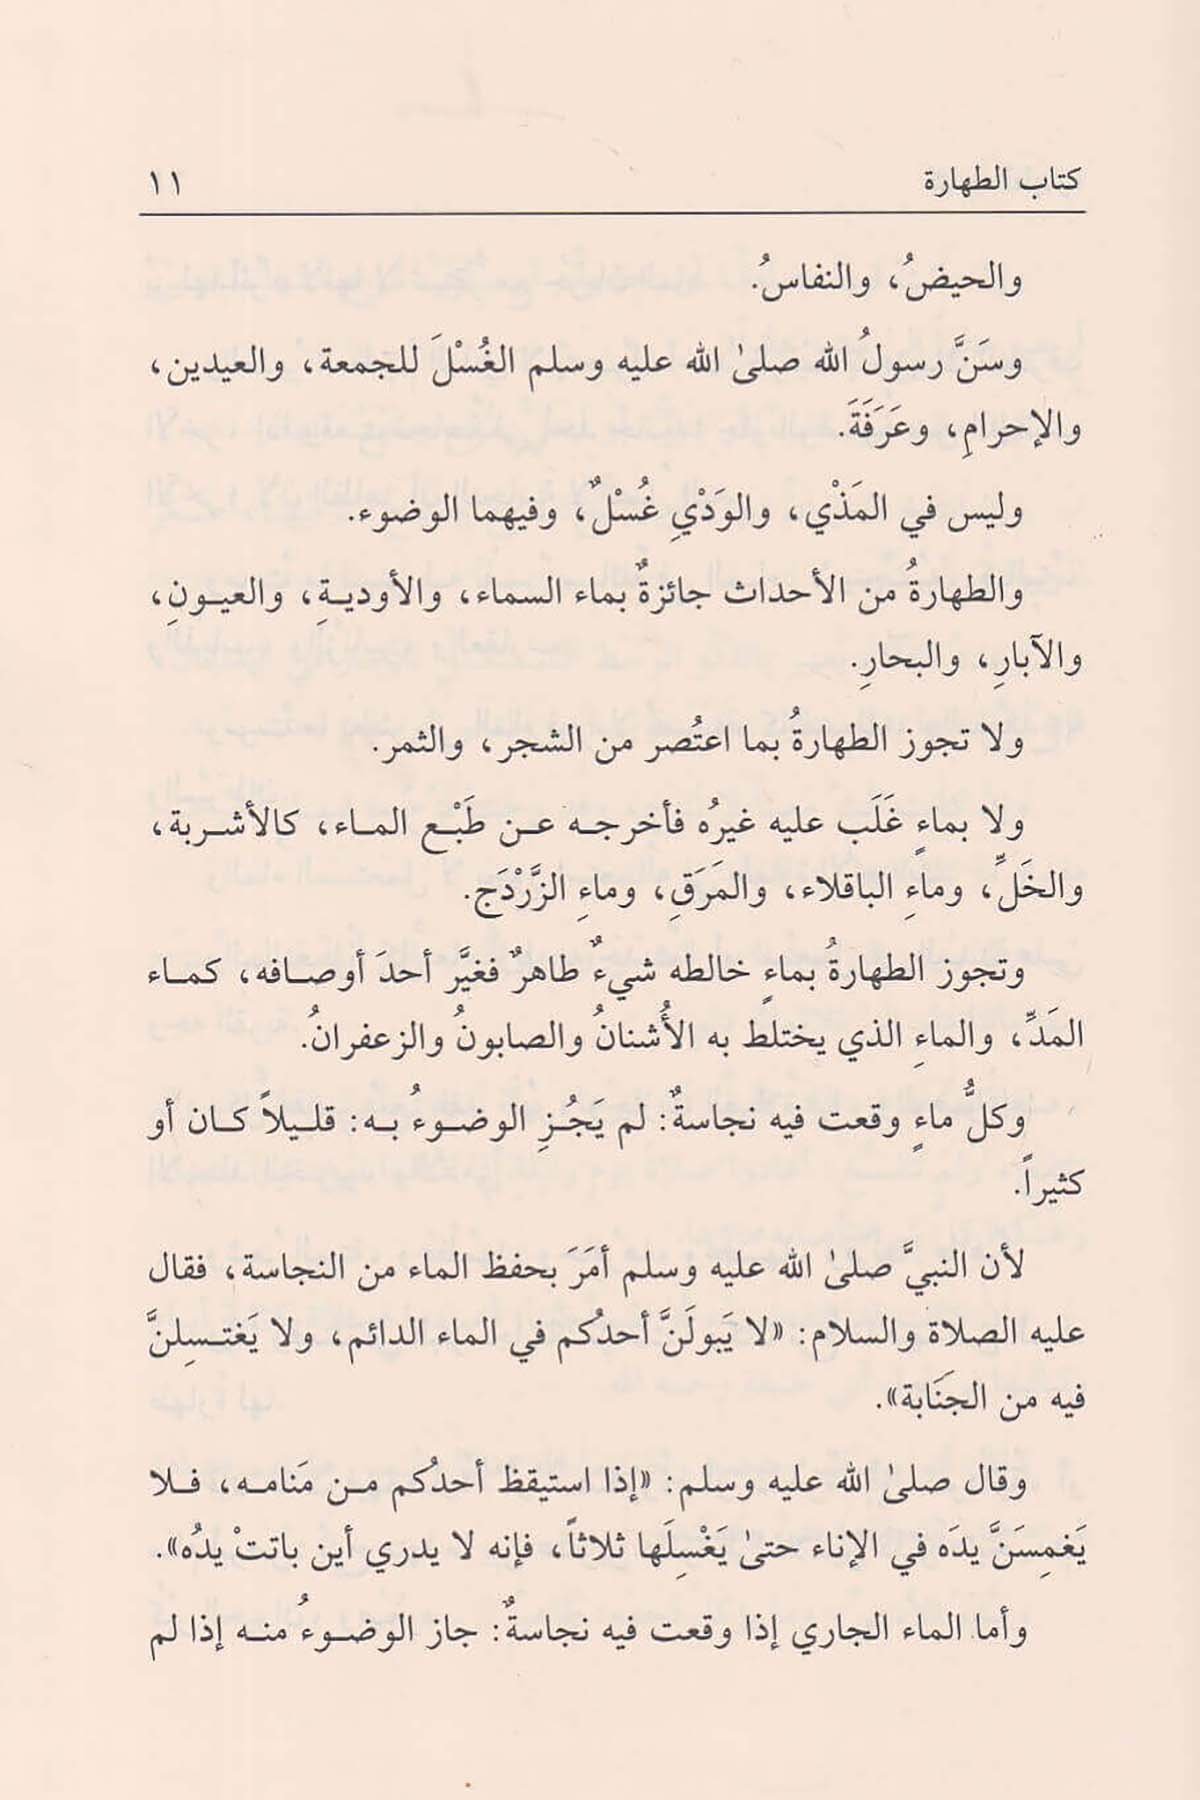 كتاب الطهارة ١١
والحيضُ، والنفاسُ.
وسَنَّ رسولُ الله صلىٰ الله عليه وسلم الغُسْلَ للجمعة، والعيدين،
والإحرامِ، وعَرَفَةَ.
وليس في المَذْي، والوَدْيِ غُسْلٌ، وفيهما الوضوء.
والطهارةُ من الأحداث جائزةٌ بماء السماء، والأوديةِ، والعيونِ،
والآبارِ، والبحارِ.
ولا تجوز الطهارةُ بما اعتُصر من الشجر، والثمر.
ولا بماءٍ غَلَب عليه غيرُه فأخرجه عن طَبْع الماء، كالأشربة،
والخَلِّ، وماءِ الباقلاء، والمَرَقِ، وماءِ الزَّرْدَج.
وتجوز الطهارةُ بماءٍ خالطه شيءٌ طاهرٌ فغيَّر أحدَ أوصافه، كماء
المَدِّ، والماءِ الذي يختلط به الأُشنانُ والصابونُ والزعفرانُ.
وكلُّ ماءٍ وقعت فيه نجاسةٌ: لم يَجُزِ الوضوءُ به: قليلاً كان أو
كثيراً.
لأن النبيَّ صلىٰ الله عليه وسلم أمَرَ بحفظ الماء من النجاسة، فقال
عليه الصلاة والسلام: «لا يَبولَنَّ أحدُكم في الماء الدائم، ولا يَغتسِلنَّ
فيه من الجَنَابة».
وقال صلىٰ الله عليه وسلم: «إذا استيقظ أحدُكم من مَنامه، فلا
يَغمِسَنَّ يدَه في الإناء حتىٰ يَغْسِلَها ثلاثاً، فإنه لا يدري أين باتتْ يدُه».
وأما الماء الجاري إذا وقعت فيه نجاسةٌ: جاز الوضوءُ منه إذا لم